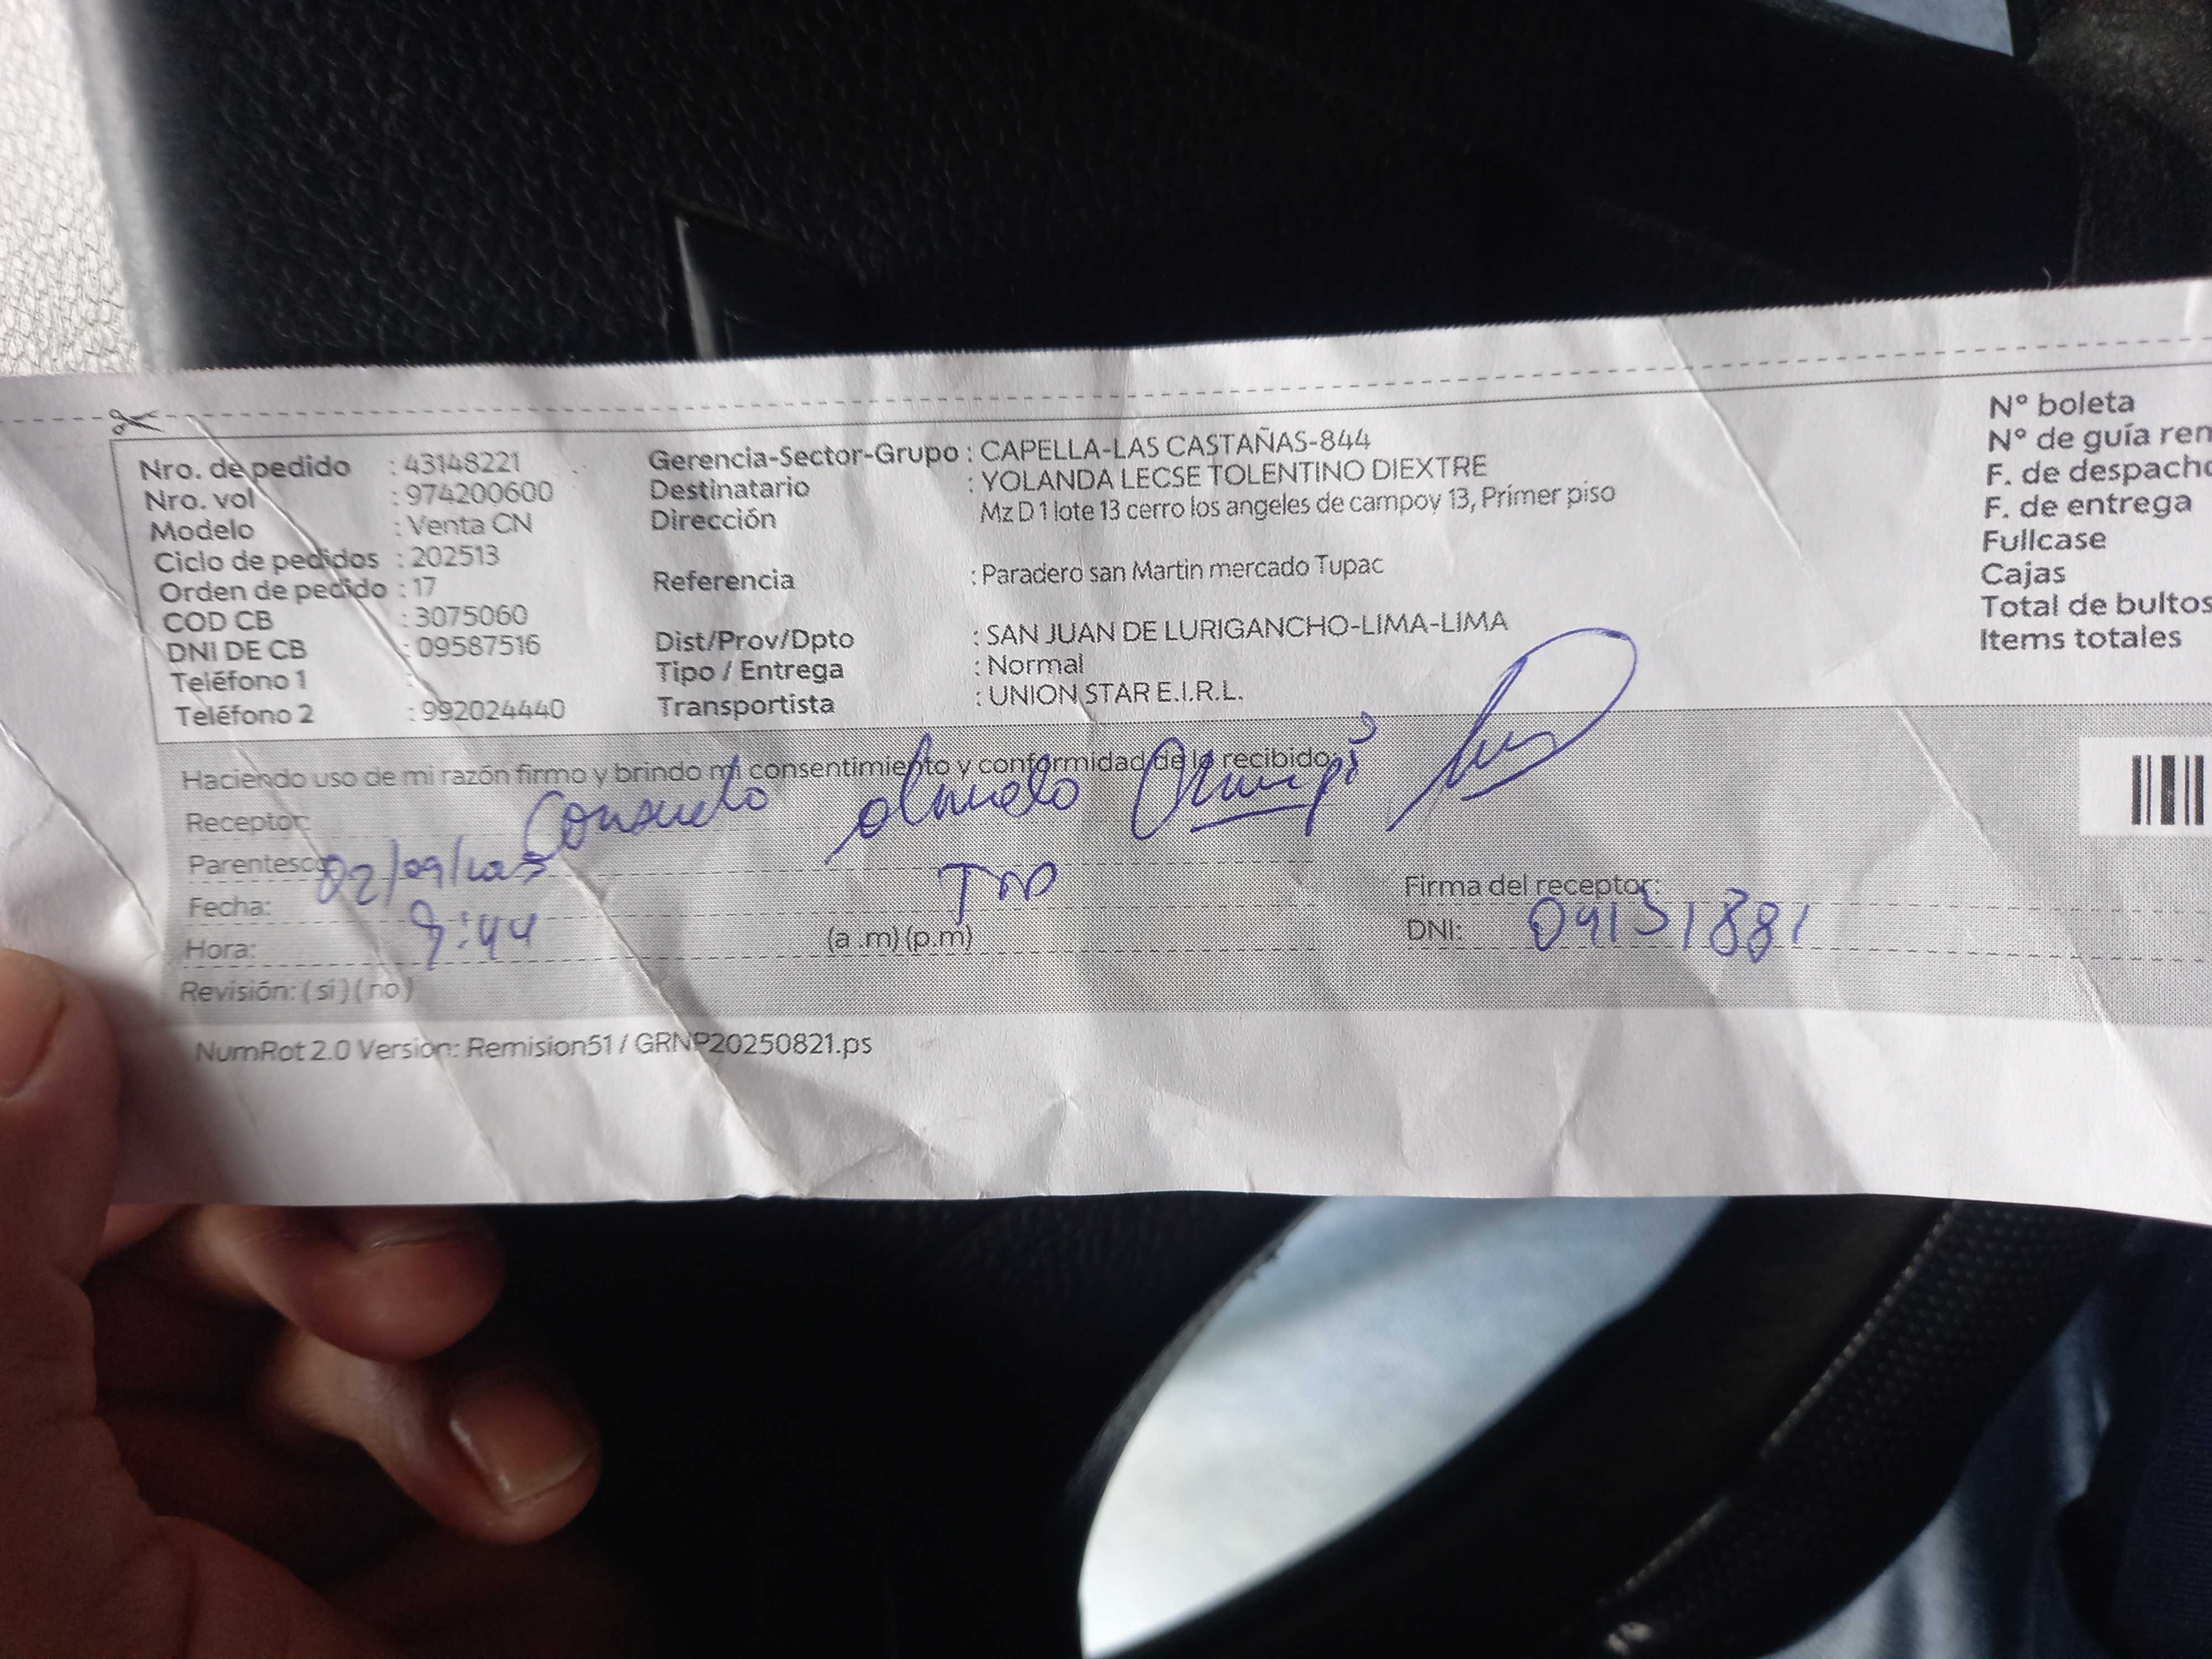 Nro. de pedido : 43148221
Nro. vol : 974200600
Modelo : Venta CN
Ciclo de pedidos : 202513
Orden de pedido : 17
COD CB : 3075060
DNI DE CB : 09587516
Teléfono 1 :
Teléfono 2 : 992024440
Gerencia-Sector-Grupo : CAPELLA-LAS CASTAÑAS-844
Destinatario : YOLANDA LECSE TOLENTINO DIEXTRE
Dirección Mz D 1 lote 13 cerro los angeles de campoy 13, Primer piso
Referencia : Paradero san Martin mercado Tupac
Dist/Prov/Dpto : SAN JUAN DE LURIGANCHO-LIMA-LIMA
Tipo / Entrega : Normal
Transportista : UNION STAR E.I.R.L.
N° boleta
N° de guía rem
F. de despacho
F. de entrega
Fullcase
Cajas
Total de bultos
Items totales
Haciendo uso de mi razón firmo y brindo mi consentimiento y conformidad de lo recibido:
Receptor: Consuelo
Parentesco:
Fecha:
Hora: 9:44 (a .m) (p.m)
Revisión: ( si ) ( no )
Firma del receptor:
DNI: 09151881
NumRot 2.0 Version: Remision51 / GRNP20250821.ps